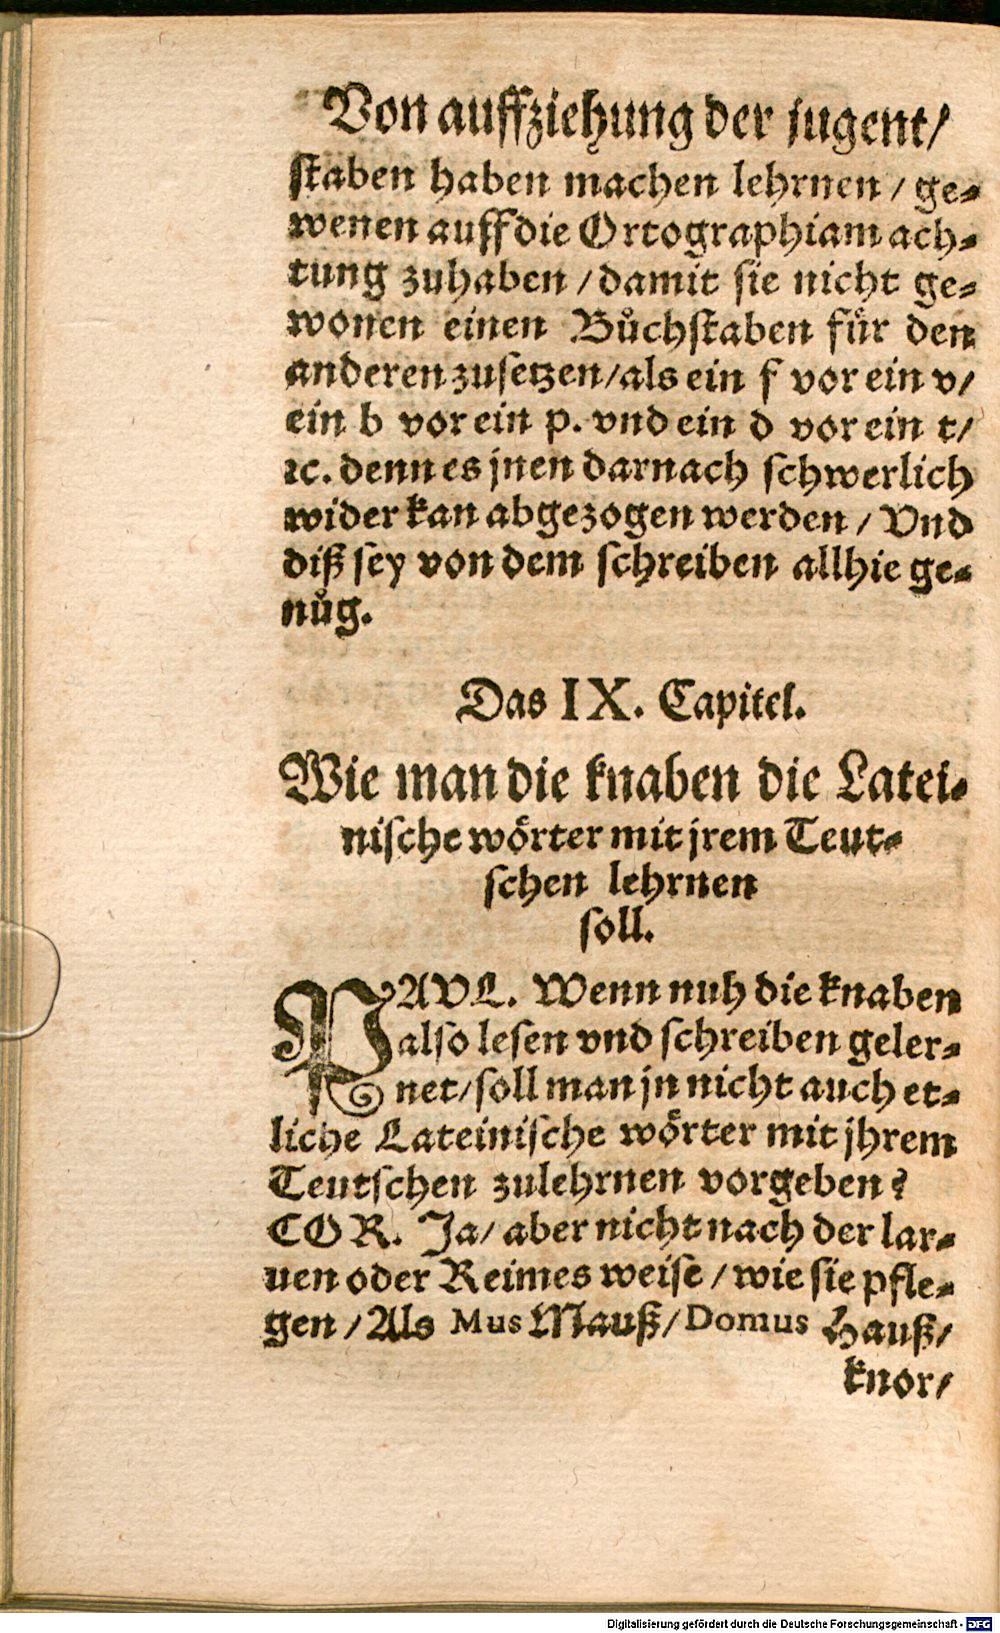 Von auffziehung der jugent/
ſtaben haben machen lehrnen / ge-
wenen auff die Ortographiam ach-
tung zuhaben / damit sie nicht ge-
wonen einen Bůchſtaben fuͤr den
anderen zuſetzen/als ein f vor ein v/
ein b vor ein p. vnd ein d vor ein t/
ꝛc. denn es jnen darnach ſchwerlich
wider kan abgezogen werden / Vnd
diß ſey von dem ſchreiben allhie ge-
nůg.
Das IX. Capitel.
Wie man die knaben die Latei-
niſche woͤrter mit jrem Teut-
ſchen lehrnen
ſoll.
PAVL. Wenn nuh die knaben
alſo leſen vnd ſchreiben geler-
net/ſoll man jn nicht auch et-
liche Lateiniſche woͤrter mit jhrem
Teutſchen zulehrnen vorgeben?
COR. Ja/ aber nicht nach der lar-
uen oder Reimes weiſe / wie ſie pfle-
gen / Als Mus Mauß/ Domus Hauß/
knor/
Digitalisierung gefördert durch die Deutsche Forschungsgemeinschaft - DFG